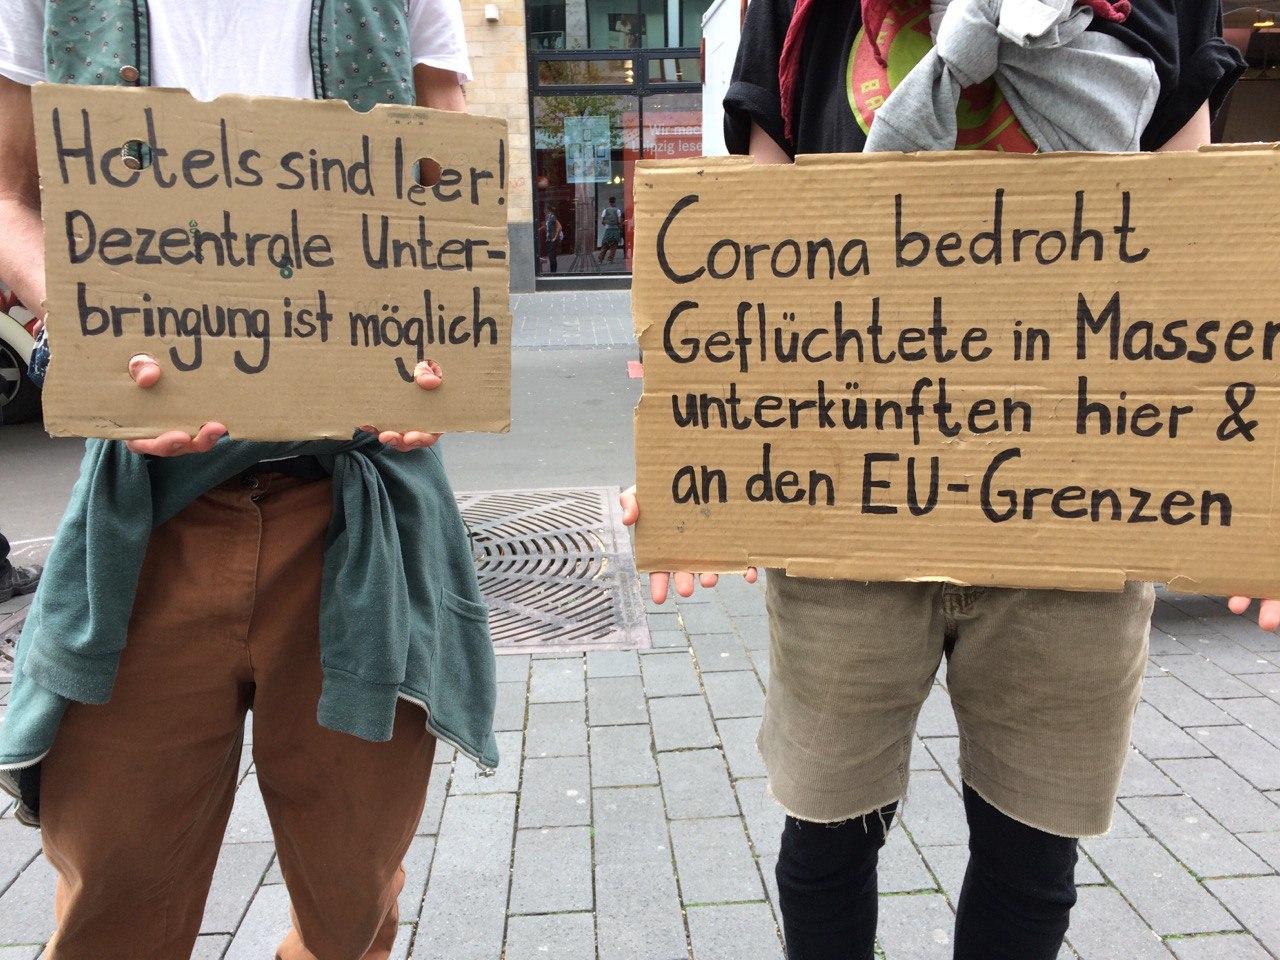 Hotels sind leer!
Dezentrale Unter-
bringung ist möglich
Corona bedroht
Geflüchtete in Massen
unterkünften hier &
an den EU-Grenzen
Wir mac
eipzig lese